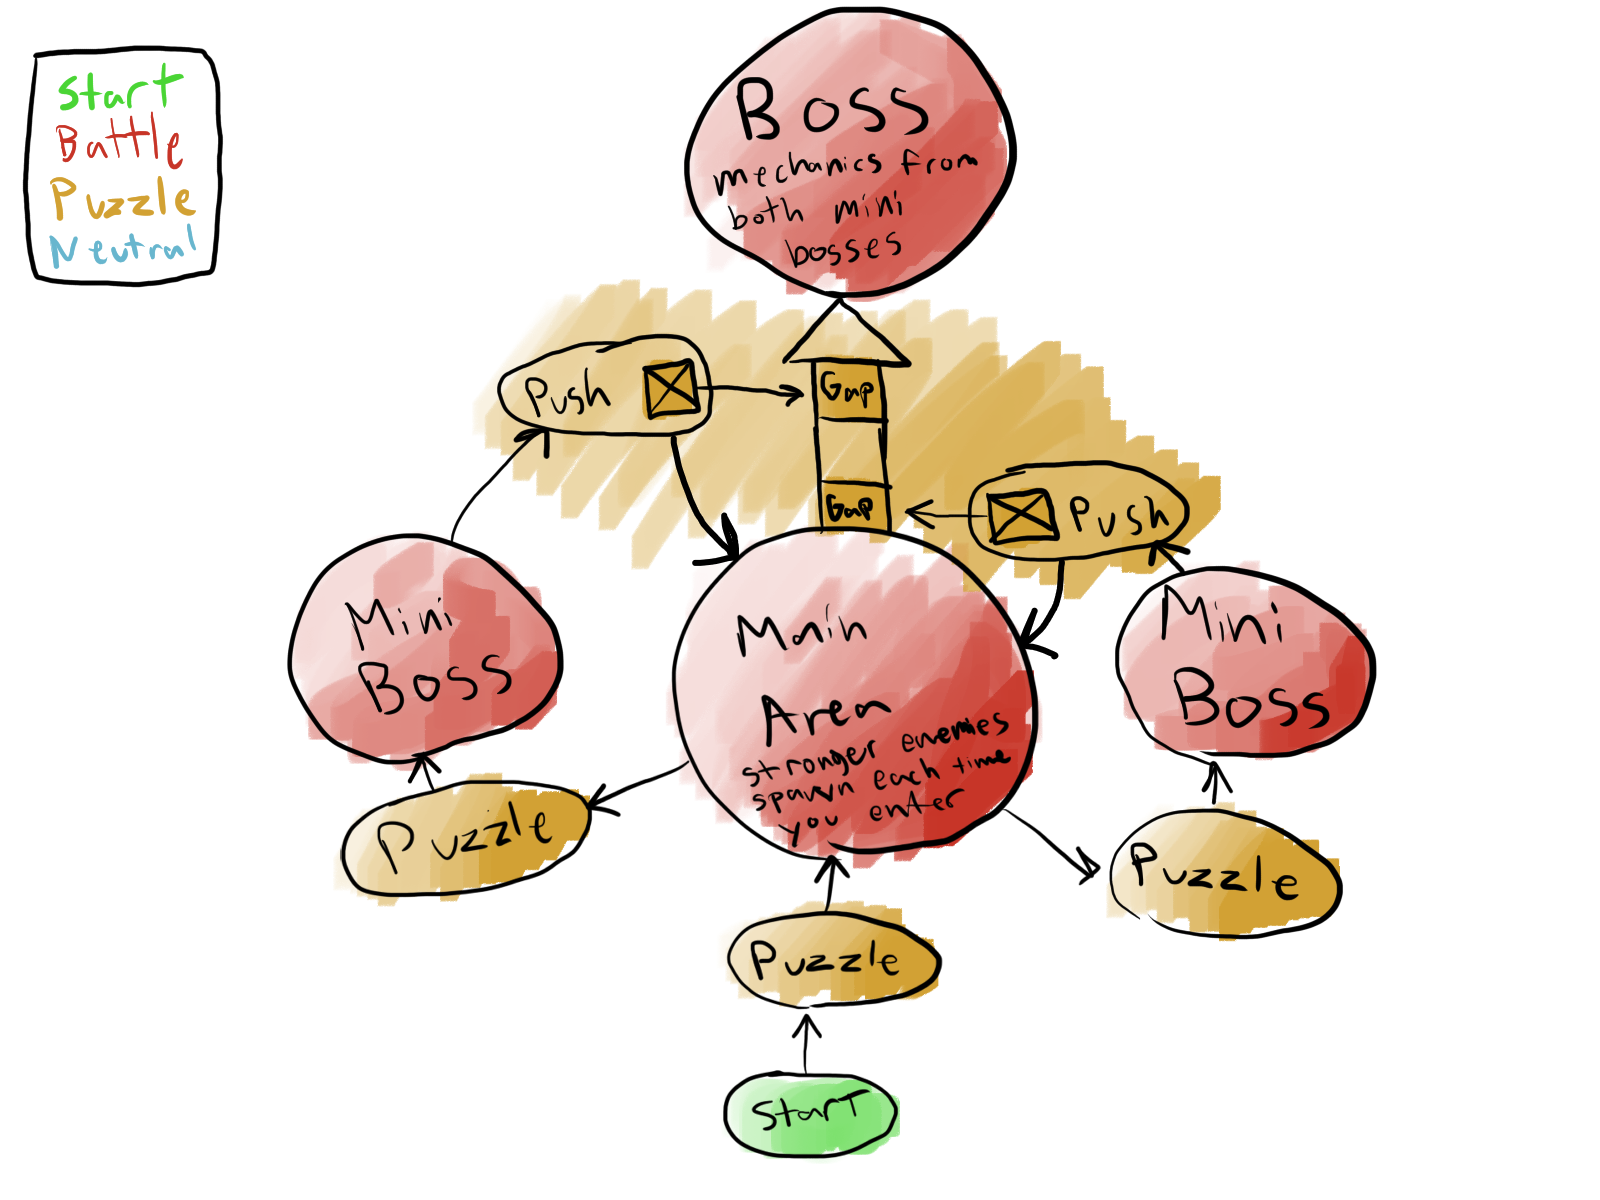 Start
Battle
Puzzle
Neutral
Boss
mechanics from
both mini
bosses
Push
Gap
Gap
Push
Mini
Boss
Main
Area
stronger enemies
spawn each time
you enter
Mini
Boss
Puzzle
Puzzle
Puzzle
Start